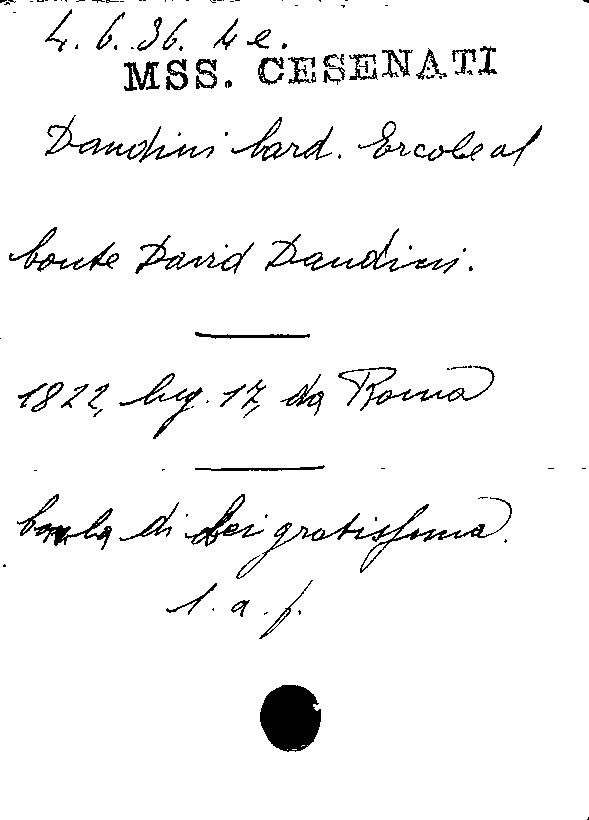 4. 6. 36. 4 e.
MSS. CESENATI
Dandini Card. Ercole al
Conte David Dandini.
1822, lug. 17, da Roma
Con la di Lei gratissima.
l. a. f.